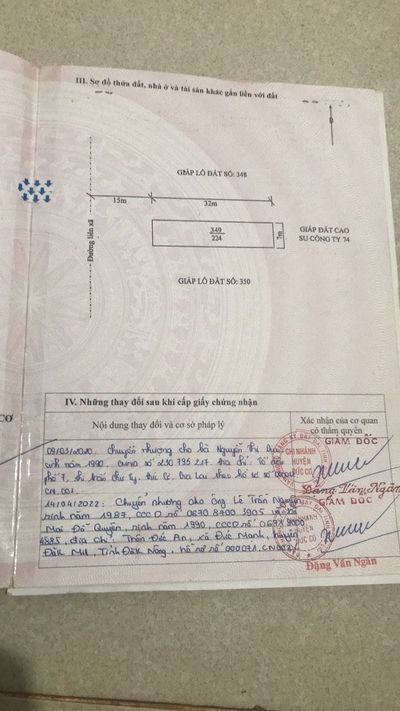 III. Sơ đồ thửa đất, nhà ở và tài sản khác gắn liền với đất
GIÁP LÔ ĐẤT SỐ: 348
15m
32m
Đường liên xã
349
224
7m
GIÁP ĐẤT CAO
SU CÔNG TY 74
GIÁP LÔ ĐẤT SỐ: 350
IV. Những thay đổi sau khi cấp giấy chứng nhận
Nội dung thay đổi và cơ sở pháp lý
Xác nhận của cơ quan
có thẩm quyền
chuyển nhượng cho bà Nguyễn Thị
sinh năm 1990, CMND số 230 795 217. Địa chỉ: Tổ dân
phố 7, thị trấn Chư Ty,
CN.001.
GIÁM ĐỐC
CHI NHÁNH
HUYỆN
ĐỨC CƠ
Đặng Văn Ngân
14/04/2022: Chuyển nhượng cho ông Lê Trần Nguyên
sinh năm 1987, CCCD số 0670 8700 3905 và bà
Mai Đỗ Quyên, sinh năm 1990, CCCD số
4885, địa chỉ: Thôn Đức An, xã Đức Mạnh, huyện
Đăk Mil, Tỉnh Đăk Nông. Hồ sơ số 000071.CN.002
GIÁM ĐỐC
CHI NHÁNH
HUYỆN
ĐỨC CƠ
Đặng Văn Ngân
CƠ